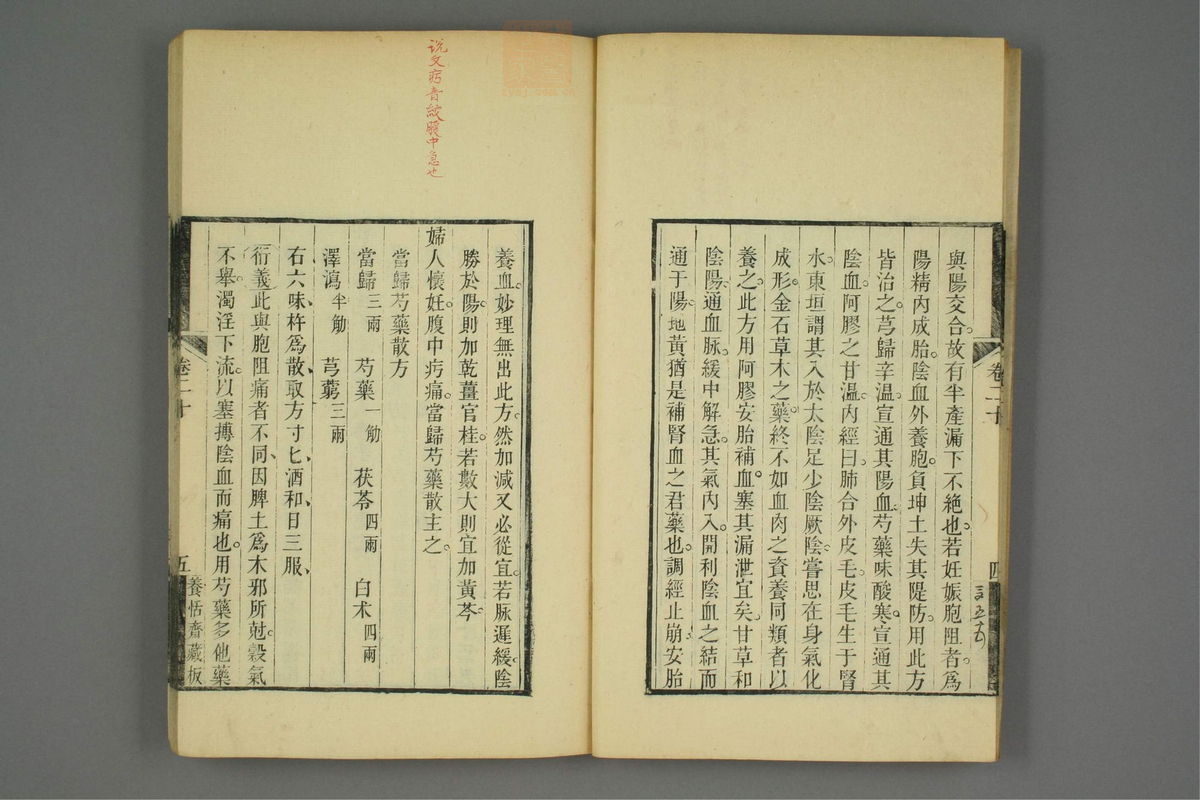 與陽交合故有半產漏下不絕也若妊娠胞阻者爲
陽精內成胎陰血外養胞負坤土失其隄防用此方
皆治之芎歸辛溫宣通其陽血芍藥味酸寒宣通其
陰血阿膠之甘溫內經曰肺合外皮毛皮毛生于腎
水東垣謂其入於太陰足少陰厥陰嘗思在身氣化
成形金石草木之藥終不如血肉之資養同類者以
養之此方用阿膠安胎補血塞其漏泄宜矣甘草和
陰陽通血脉緩中解急其氣內入開利陰血之結而
通于陽地黃猶是補腎血之君藥也調經止崩安胎
卷二十
四
养血妙理無出此方然加減又必從宜若脉遲緩陰
勝於陽則加乾薑官桂若數大則宜加黃芩
婦人懷妊腹中㽲痛當歸芍藥散主之
當歸芍藥散方
當歸三兩 芍藥一觔 茯苓四兩 白朮四兩
澤瀉半觔 芎藭三兩
右六味杵爲散取方寸匕酒和日三服
衍義此與胞阻痛者不同因脾土爲木邪所尅穀氣
不舉濁淫下流以塞搏陰血而痛也用芍藥多他藥
卷二十
五
養恬齋藏板
说文㽲音絞腹中急也